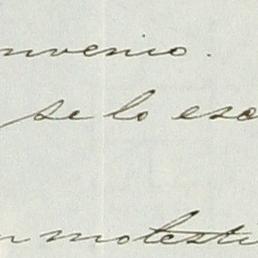 nvenio.
se lo esc
n molesti